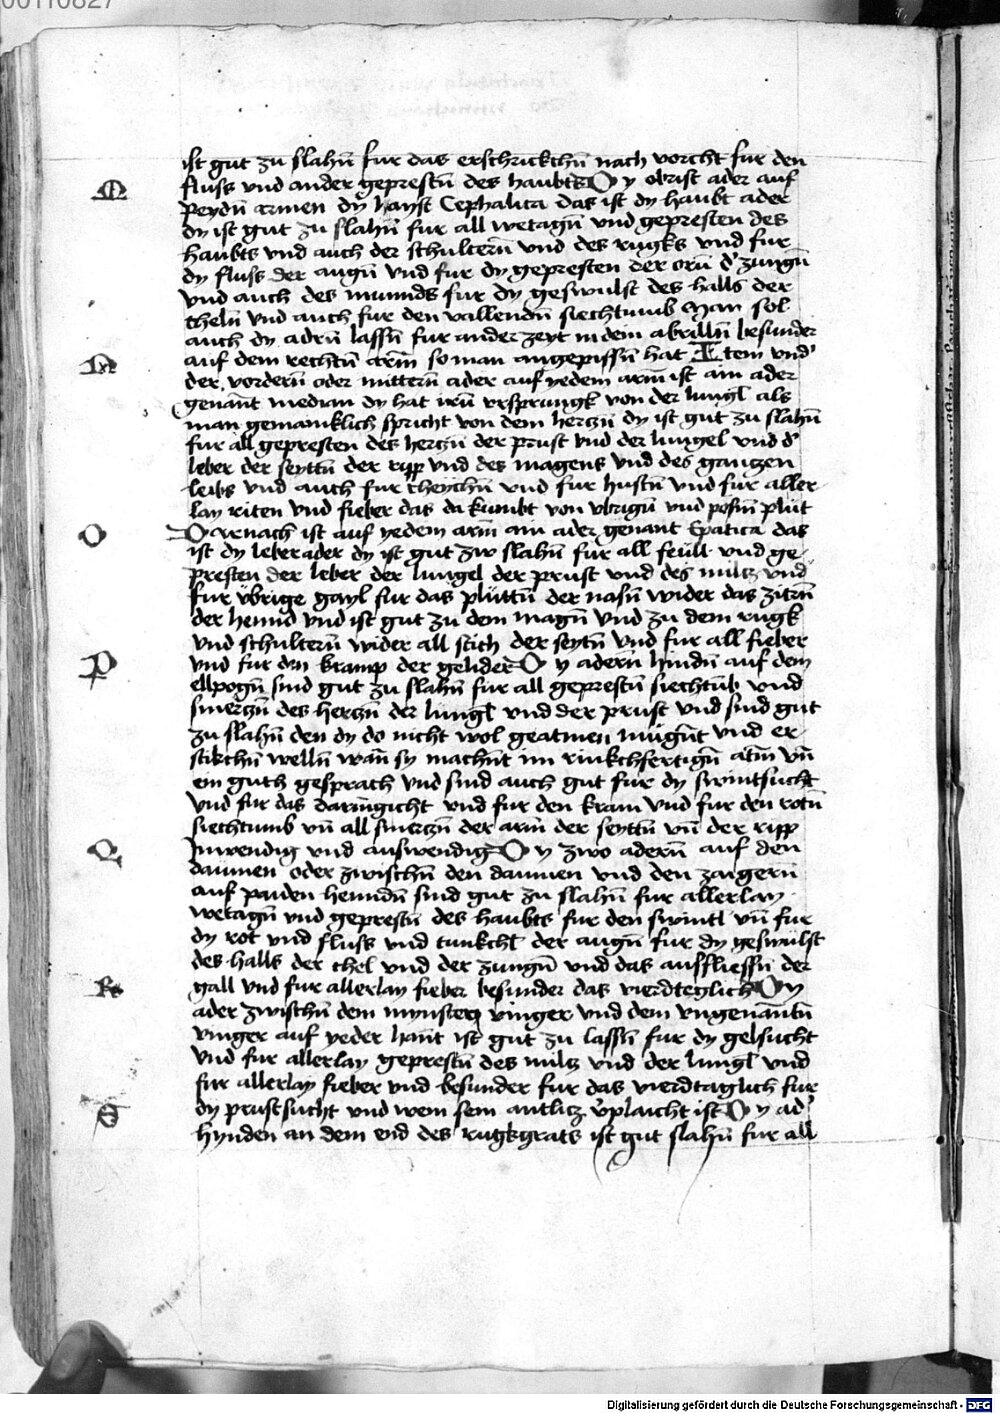 00110827
ist gut zu slahñ fur das erschrickchñ nach vorcht fur den
M
fluss vnd ander geprestñ des haubts Dy obrist ader auf
peydñ armen dy hayst Cephalica das ist dy haubt ader
dy ist gut zu slahñ fur all wetagñ vnd gepresten des
haubts vnd auch der schulterñ vnd des rugks vnd fur
dy fluss der augñ vnd fur dy gepresten der orñ d' zungñ
vnd auch des munds fur dy geswulst des halls der
chelñ vnd auch fur den vallendñ siechtumb Man sol
auch dy adrñ lassñ fur ander zeyt in dem abrillñ besunder
N
auf dem rechtñ arm̄ so man angepissñ hat Item vnd'
der vorderñ oder mitterñ ader auf yedem arm̄ ist ain ader
genant median dy hat irñ vrsprungk von der lungl als
man gemainklich spricht von dem hertzñ dy ist gut zu slahñ
fur all gepresten des hertzñ der prust vnd der lungel vnd d'
leber der seyttñ der ripp vnd des magens vnd des gantzen
leibs vnd auch fur cheychñ vnd fur hustñ vnd fur aller
lay riten vnd fieber das da kumbt von vbrigñ vnd posñ plut
O
Darnach ist auf yedem arm̄ ain ader genant Epatica das
ist dy leber ader dy ist gut zw slahñ fur all feült vnd ge
presten der leber der lungel der prust vnd des miltz vnd
fur vbrige gayl fur das plüttñ der nasñ wider das zitrñ
der hennd vnd ist gut zu dem magñ vnd zu dem rugk
vnd schulterñ wider all stich der seytñ vnd fur all fieber
P
vnd fur den kramp der gelider Dy aderñ hindñ auf dem
ellpogñ sind gut zu slahñ fur all geprestñ siechtũb vnd
smertzñ des hertzñ der lungl vnd der prust vnd sind gut
zu slahñ den dy do nicht wol geatmen mugñt vnd er
stikchñ wellñ wañ sy machñt im rinkchfertigñ atm̄ vñ
ein guth gesprach vnd sind auch gut fur dy swintsucht
vnd fur das darmgicht vnd fur den kram vnd fur den rotñ
siechtumb vñ all smertzñ der arm̄ der seyttñ vñ der ripp
Q
Inwendig vnd auswendig Dy zwo aderñ auf den
daumen oder zwischñ den daumen vnd den zaigerñ
auf paiden henndñ sind gut zu slahñ fur allerlay
wetagñ vnd geprestñ des haubts fur den swintl vñ fur
dy rot vnd fluss vnd tunkchl der augñ fur dy geswulst
des halls der chel vnd der zungñ vnd das ausfliessñ der
R
gall vnd fur allerlay fieber besunder das vierdteglich Dy
ader zwischñ dem mynstez vinger vnd dem vngenantñ
vinger auf yeder hant ist gut zu lassñ fur dy gelsucht
vnd fur allerlay geprestñ des miltz vnd der lungl vnd
fur allerlay fieber vnd besunder fur das vierdtaglich fur
S
dy prustsucht vnd wem sein antlitz v'plaicht ist Dy ad'
hynden an dem end des rugkgrats ist gut slahñ fur all
Digitalisierung gefördert durch die Deutsche Forschungsgemeinschaft - DFG